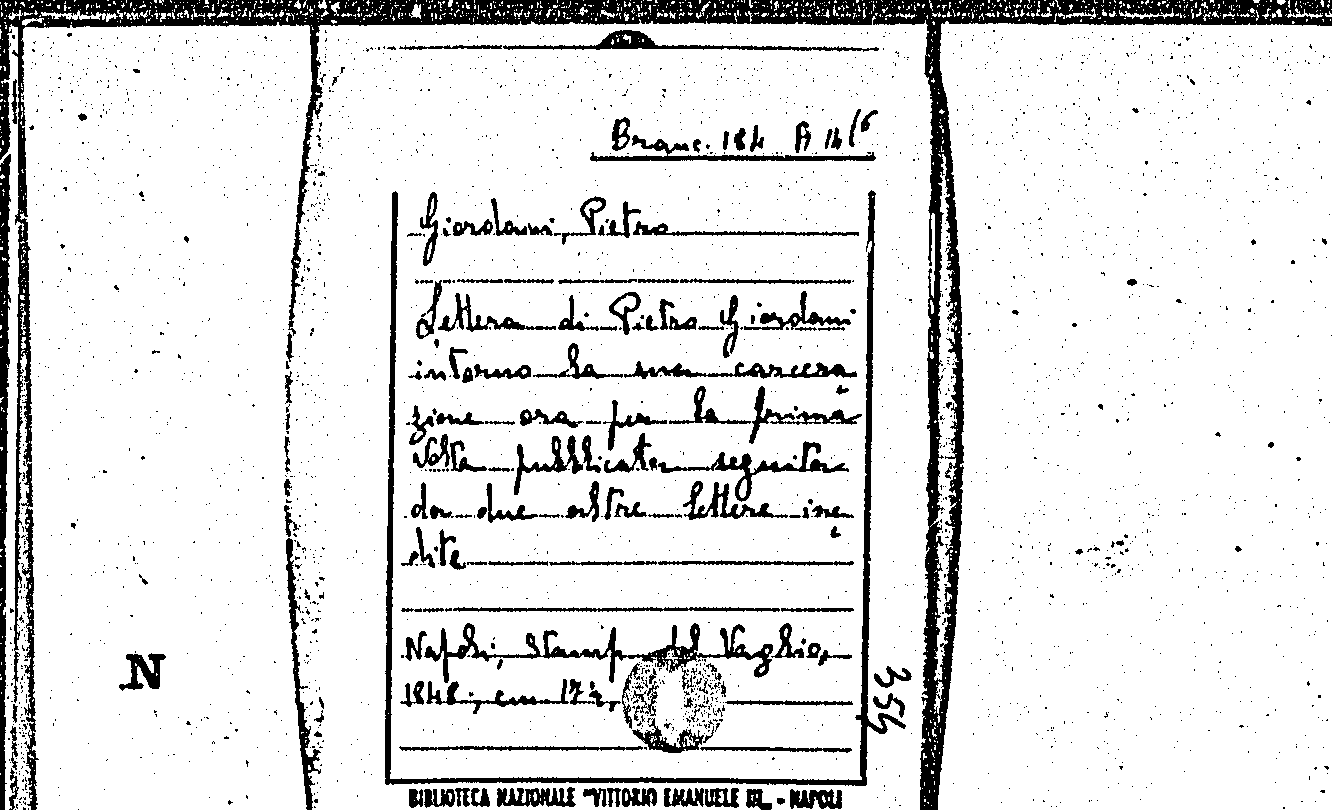 Branc. 184 A 14(6
Giordani, Pietro
Lettera di Pietro Giordani
intorno la sua carcera
zione ora per la prima
volta pubblicata seguita
da due altre lettere ine
dite
Napoli, Stamp del Vaglio,
1848; cm 17½,
354
N
BIBLIOTECA NAZIONALE "VITTORIO EMANUELE III" - NAPOLI